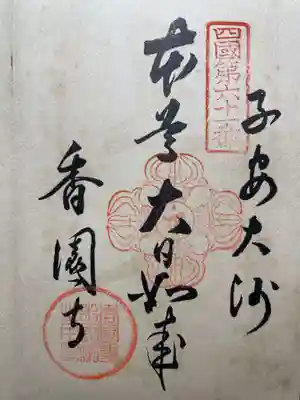 四國第六十一番
子安大師
本尊大日如来
香園寺